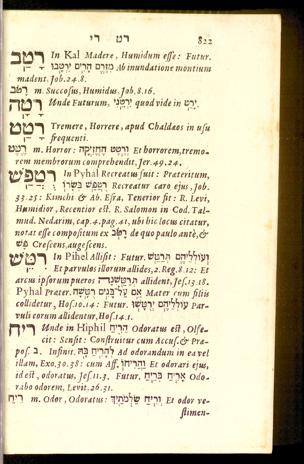 רט רי 822
רָטַב In Kal Madere, Humidum esse: Futur.
מִזֶּרֶם הָרִים יִרְטָבוּ Ab inundatione montium
madent. Job. 24. 8.
רָטֹב m. Succosus, Humidus, Job. 8. 16.
רָטָה Unde Futurum, יִרְטֵנִי quod vide in יָרַט.
רָטַט Tremere, Horrere, apud Chaldæos in usu
frequenti.
רֶטֶט m. Horror: וְרֶטֶט הֶחֱזִיקָה Et horrorem, tremo-
rem membrorum comprehendit, Jer. 49. 24.
רֻטֲפַשׁ In Pyhal Recreatus fuit: Præteritum,
רֻטֲפַשׁ בְּשָׂרוֹ Recreatur caro ejus, Job.
33. 25: Kimchi & Ab. Esra, Tenerior fit: R. Levi,
Humidior, Recentior est. R. Salomon in Cod. Tal-
mud. Nedarim, cap. 4. pag. 41, ubi hic locus citatur,
notat esse compositum ex רָטֹב de quo paulo ante, &
פש Crescens, augescens.
רָטַשׁ In Pihel Allisit: Futur. וְעוֹלְלֵיהֶם תְּרַטֵּשׁ
Et parvulos illorum allides, 2. Reg. 8. 12: Et
arcus ipsorum pueros תְּרַטַּשְׁנָה allident, Jes. 13. 18.
Pyhal Præter. אֵם עַל־בָּנִים רֻטָּשָׁה Mater cum filiis
collidetur, Hos. 10. 14: Futur. עוֹלְלֵיהֶם יְרֻטָּשׁוּ Par-
vuli eorum allidentur, Hos. 14. 1.
רִיחַ Unde in Hiphil הֵרִיחַ Odoratus est, Olfe-
cit: Sensit: Construitur cum Accus. & Præ-
pos. ב. Infinit. לְהָרִיחַ בָּהּ Ad odorandum in ea vel
illam, Exo. 30. 38: cum Aff. וַהֲרִיחוֹ Et odorari ejus,
id est, odoratus, Jes. 11. 3. Futur. אָרִיחַ בְּרֵיחַ Odo-
rabo odorem, Levit. 26. 31.
רֵיחַ m. Odor, Odoratus: וְרֵיחַ שַׂלְמֹתַיִךְ Et odor ve-
stimen-